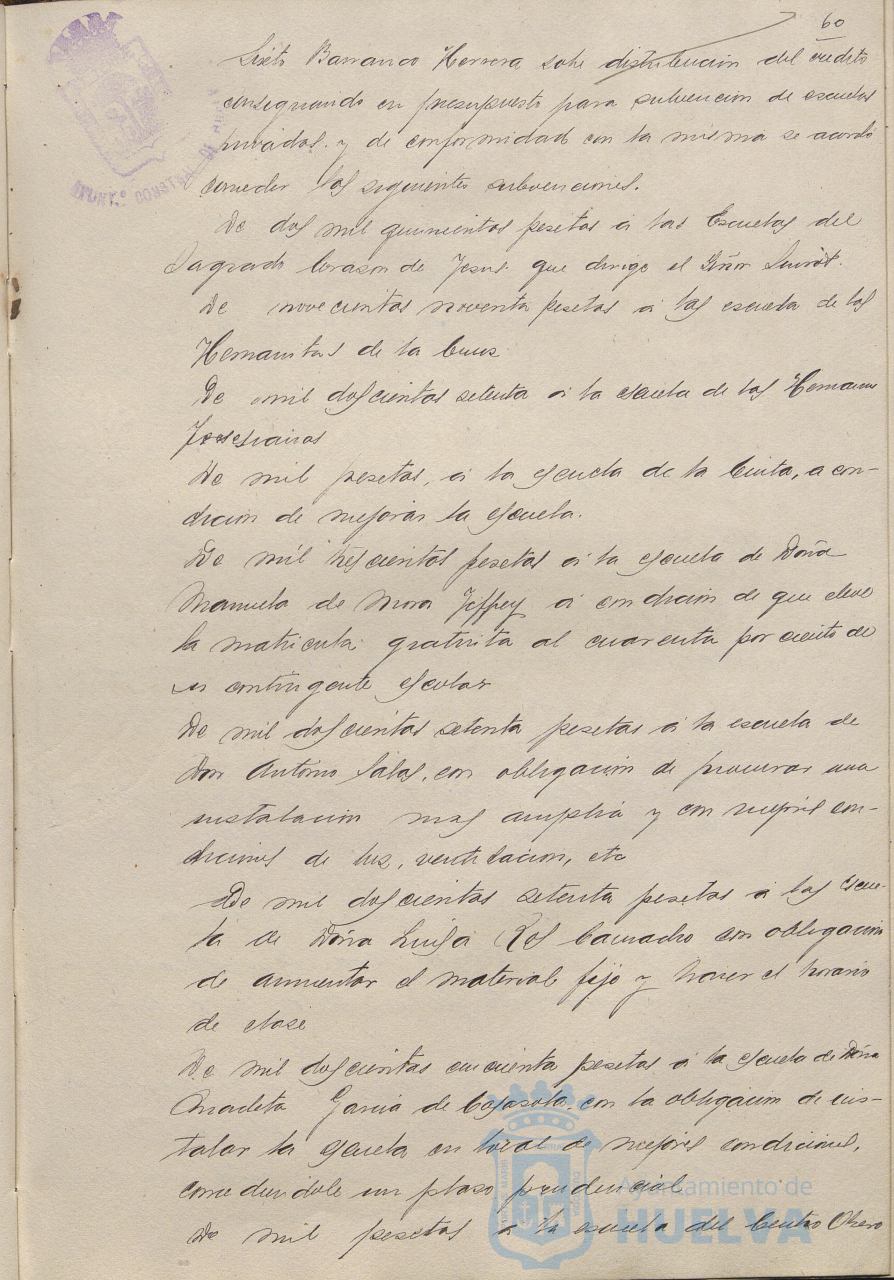 60
Sixto Barranco Herrera sobre distribucion del credito
consignado en presupuesto para subvencion de escuelas
privadas. y de conformidad con la misma se acordó
conceder las siguientes subvenciones.
De dos mil quinientas pesetas á las Escuelas del
Sagrado Corazon de Jesus que dirige el Señor
De novecientas noventa pesetas á las escuela de las
Hermanitas de la Cruz
De mil doscientas setenta á la escuela de las Hermanas
De mil pesetas, á la escuela de la Cinta, a con-
dicion de mejorar la escuela.
De mil trescientas pesetas á la escuela de Doña
Manuela de Mora Jeffrey á condicion de que eleve
la matricula gratuita al cuarenta por ciento de
su contingente escolar
De mil doscientas setenta pesetas á la escuela de
Don Antonio Salas, con obligacion de procurar una
instalacion mas amplia y con mejores con-
diciones de luz, ventilacion, etc
De mil doscientas setenta pesetas á las escue-
la de Doña Luisa Ros Camacho con obligacion
de aumentar el material fijo y hacer el horario
de clase
De mil doscientas cincuenta pesetas á la escuela de Doña
Anacleta Garcia de Casasola, con la obligacion de ins-
talar la escuela en local de mejores condiciones,
concediendole un plazo prudencial
De mil pesetas a la escuela del Centro Obrero
AYUNT.º CONSTNAL DE HUELVA
Ayuntamiento de
HUELVA